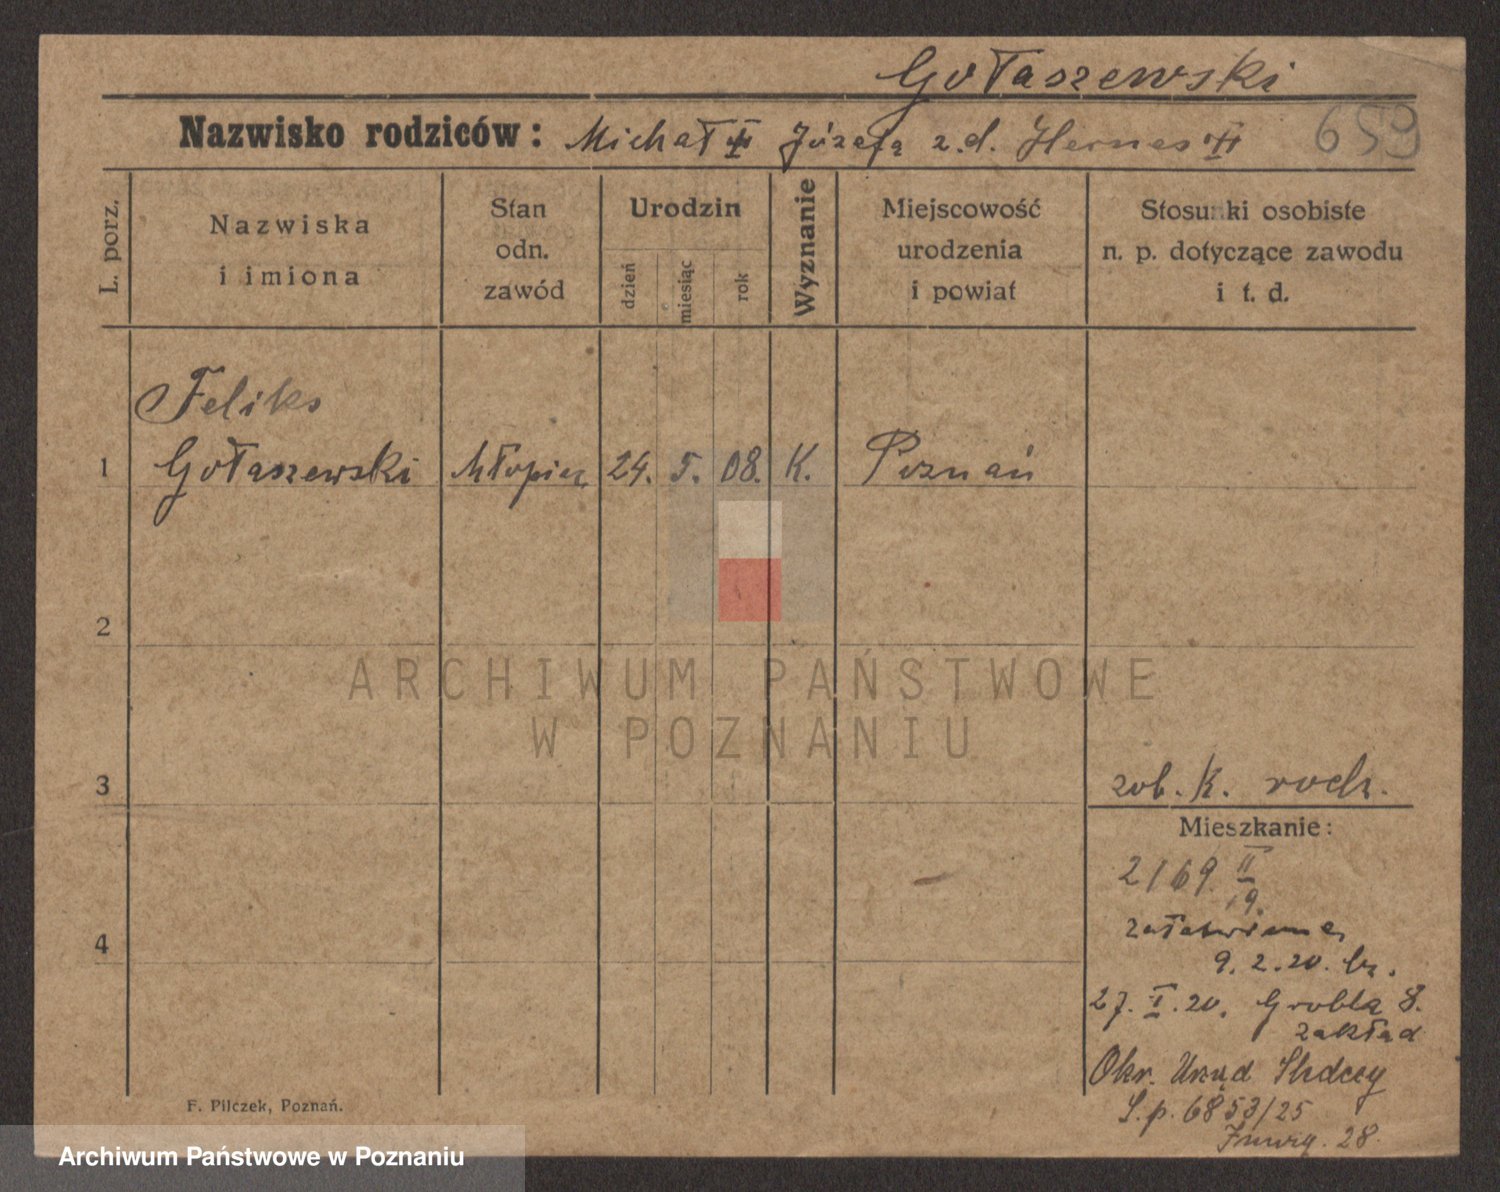 Gołaszewski
Nazwisko rodziców: Michał Józefa z.d. Hermes
659
L. porz.
Nazwiska
i imiona
Stan
odn.
zawód
Urodzin
dzień
miesiąc
rok
Wyznanie
Miejscowość
urodzenia
i powiat
Stosunki osobiste
n. p. dotyczące zawodu
i t. d.
Feliks
1 Gołaszewski 24. 5. 08. K. Poznań
2
ARCHIWUM PAŃSTWOWE
W POZNANIU
3
zob. K. rodz.
Mieszkanie:
2169 II
19.
załatwione
9. 2. 20.
4
27. I. 20. Grobla 8.
zakład
Okr. Urząd Śledczy
L.p. 6853/25
28.
F. Pilczek, Poznań.
Archiwum Państwowe w Poznaniu